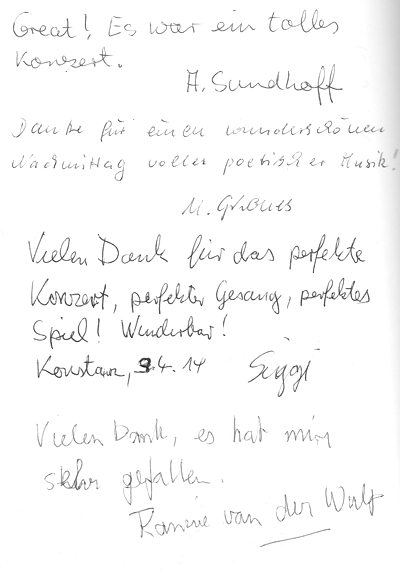 Great! Es war ein tolles
Konzert.
A. Sundhoff
Danke für einen wunderschönen
Nachmittag voller poetischer Musik!
M.
Vielen Dank für das perfekte
Konzert, perfekter Gesang, perfektes
Spiel! Wunderbar!
Konstanz, 9.4.14 Siggi
Vielen Dank, es hat mir
sehr gefallen.
van der Wulf